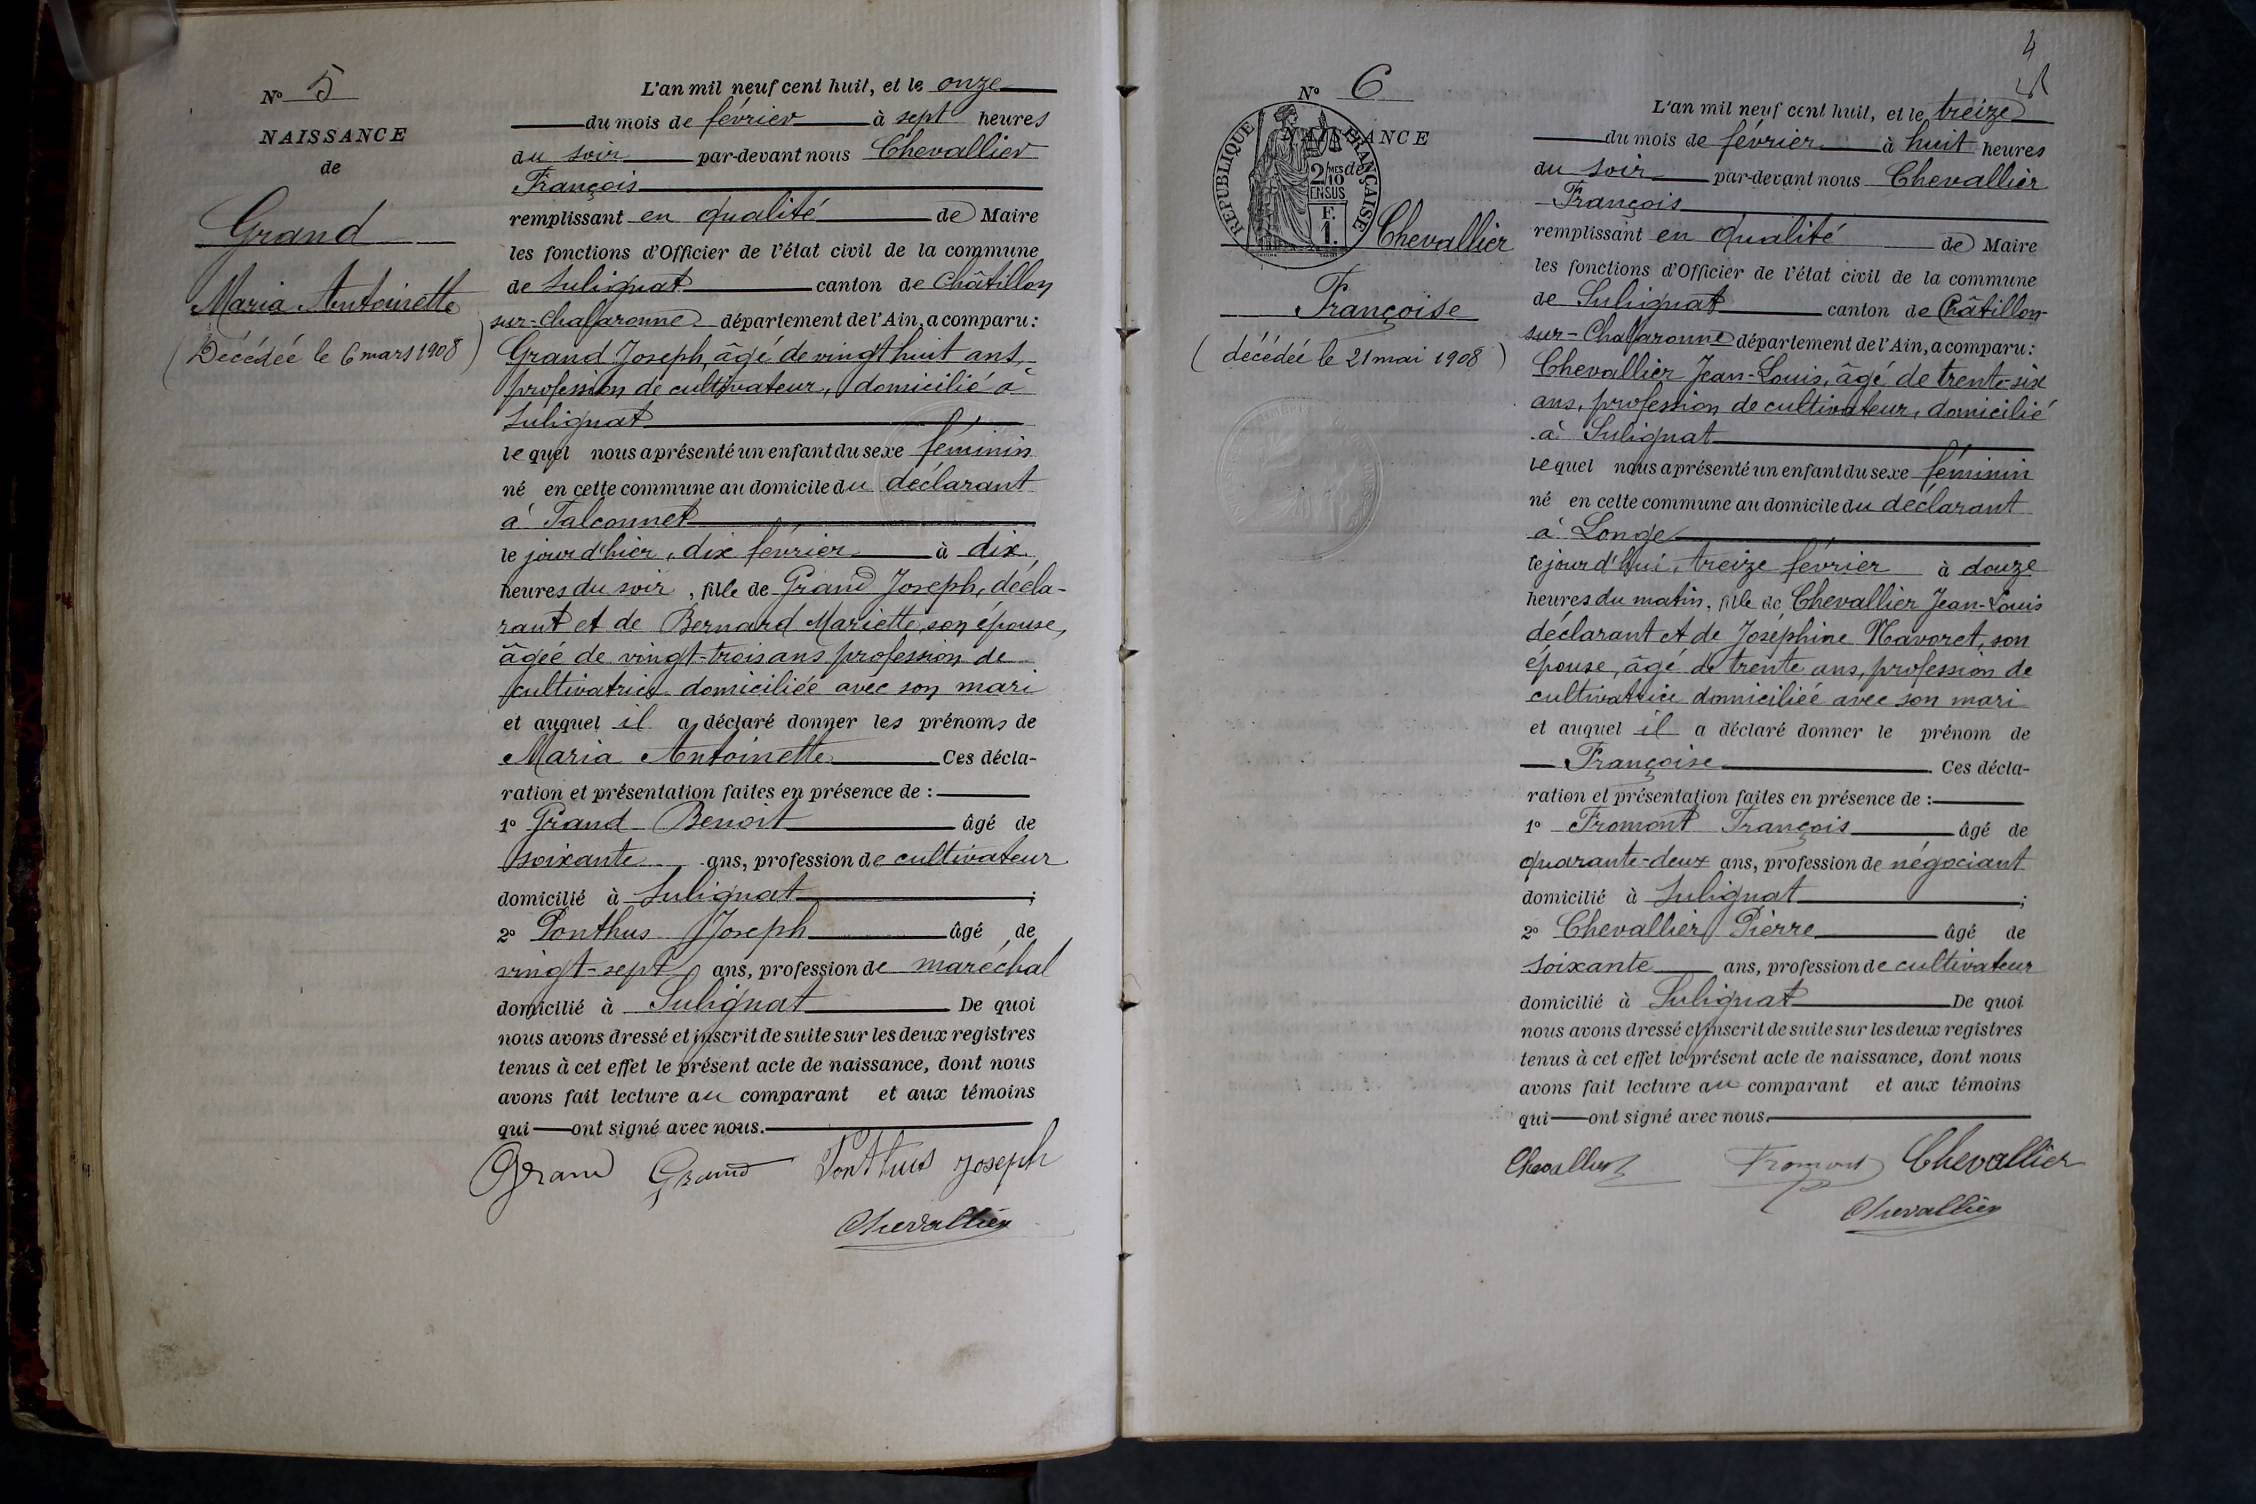 N° 5
NAISSANCE
de
Grand
Maria Antoinette
(Décédée le 6 mars 1908)
L'an mil neuf cent huit, et le onze
du mois de février à sept heures
du soir par-devant nous Chevallier
François
remplissant en qualité de Maire
les fonctions d'Officier de l'état civil de la commune
de Sulignat canton de Châtillon
sur-Chalaronne département de l'Ain, a comparu :
Grand Joseph, âgé de vingt huit ans,
profession de cultivateur, domicilié à
Sulignat
lequel nous a présenté un enfant du sexe féminin
né en cette commune au domicile du déclarant
à Talconnet
le jour d'hier, dix février à dix
heures du soir, fille de Grand Joseph, décla-
rant et de Bernard Mariette, son épouse,
âgée de vingt-trois ans profession de
cultivatrice domiciliée avec son mari
et auquel il a déclaré donner les prénoms de
Maria Antoinette Ces décla-
ration et présentation faites en présence de :
1° Grand Benoit âgé de
soixante ans, profession de cultivateur
domicilié à Sulignat ;
2° Ponthus Joseph âgé de
vingt-sept ans, profession de maréchal
domicilié à Sulignat De quoi
nous avons dressé et inscrit de suite sur les deux registres
tenus à cet effet le présent acte de naissance, dont nous
avons fait lecture au comparant et aux témoins
qui ont signé avec nous.
Grand Grand Ponthus Joseph
Chevallier
4
N° 6
NAISSANCE
de
REPUBLIQUE FRANÇAISE
2/10MES
EN SUS
F.
1.
Chevallier
Françoise
(décédée le 21 mai 1908)
L'an mil neuf cent huit, et le treize
du mois de février à huit heures
du soir par-devant nous Chevallier
François
remplissant en qualité de Maire
les fonctions d'Officier de l'état civil de la commune
de Sulignat canton de Châtillon-
sur-Chalaronne département de l'Ain, a comparu :
Chevallier Jean-Louis, âgé de trente-six
ans, profession de cultivateur, domicilié
à Sulignat
lequel nous a présenté un enfant du sexe féminin
né en cette commune au domicile du déclarant
à Longe
le jour d'hui, treize février à douze
heures du matin, fille de Chevallier Jean-Louis
déclarant et de Joséphine Navoret, son
épouse, âgé de trente ans, profession de
cultivatrice domiciliée avec son mari
et auquel il a déclaré donner le prénom de
Françoise. Ces décla-
ration et présentation faites en présence de :
1° Fromont François âgé de
quarante-deux ans, profession de négociant
domicilié à Sulignat ;
2° Chevallier Pierre âgé de
soixante ans, profession de cultivateur
domicilié à Sulignat De quoi
nous avons dressé et inscrit de suite sur les deux registres
tenus à cet effet le présent acte de naissance, dont nous
avons fait lecture au comparant et aux témoins
qui ont signé avec nous.
Chevallier Fromont Chevallier
Chevallier